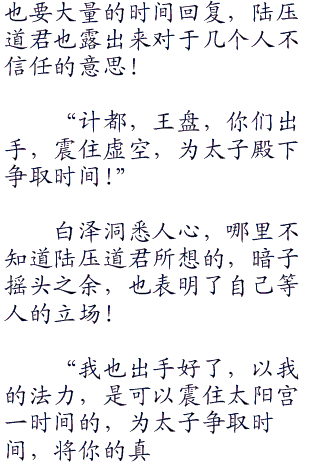 也要大量的时间回复，陆压
道君也露出来对于几个人不
信任的意思！
“计都，王盘，你们出
手，震住虚空，为太子殿下
争取时间！”
白泽洞悉人心，哪里不
知道陆压道君所想的，暗子
摇头之余，也表明了自己等
人的立场！
“我也出手好了，以我
的法力，是可以震住太阳宫
一时间的，为太子争取时
间，将你的真